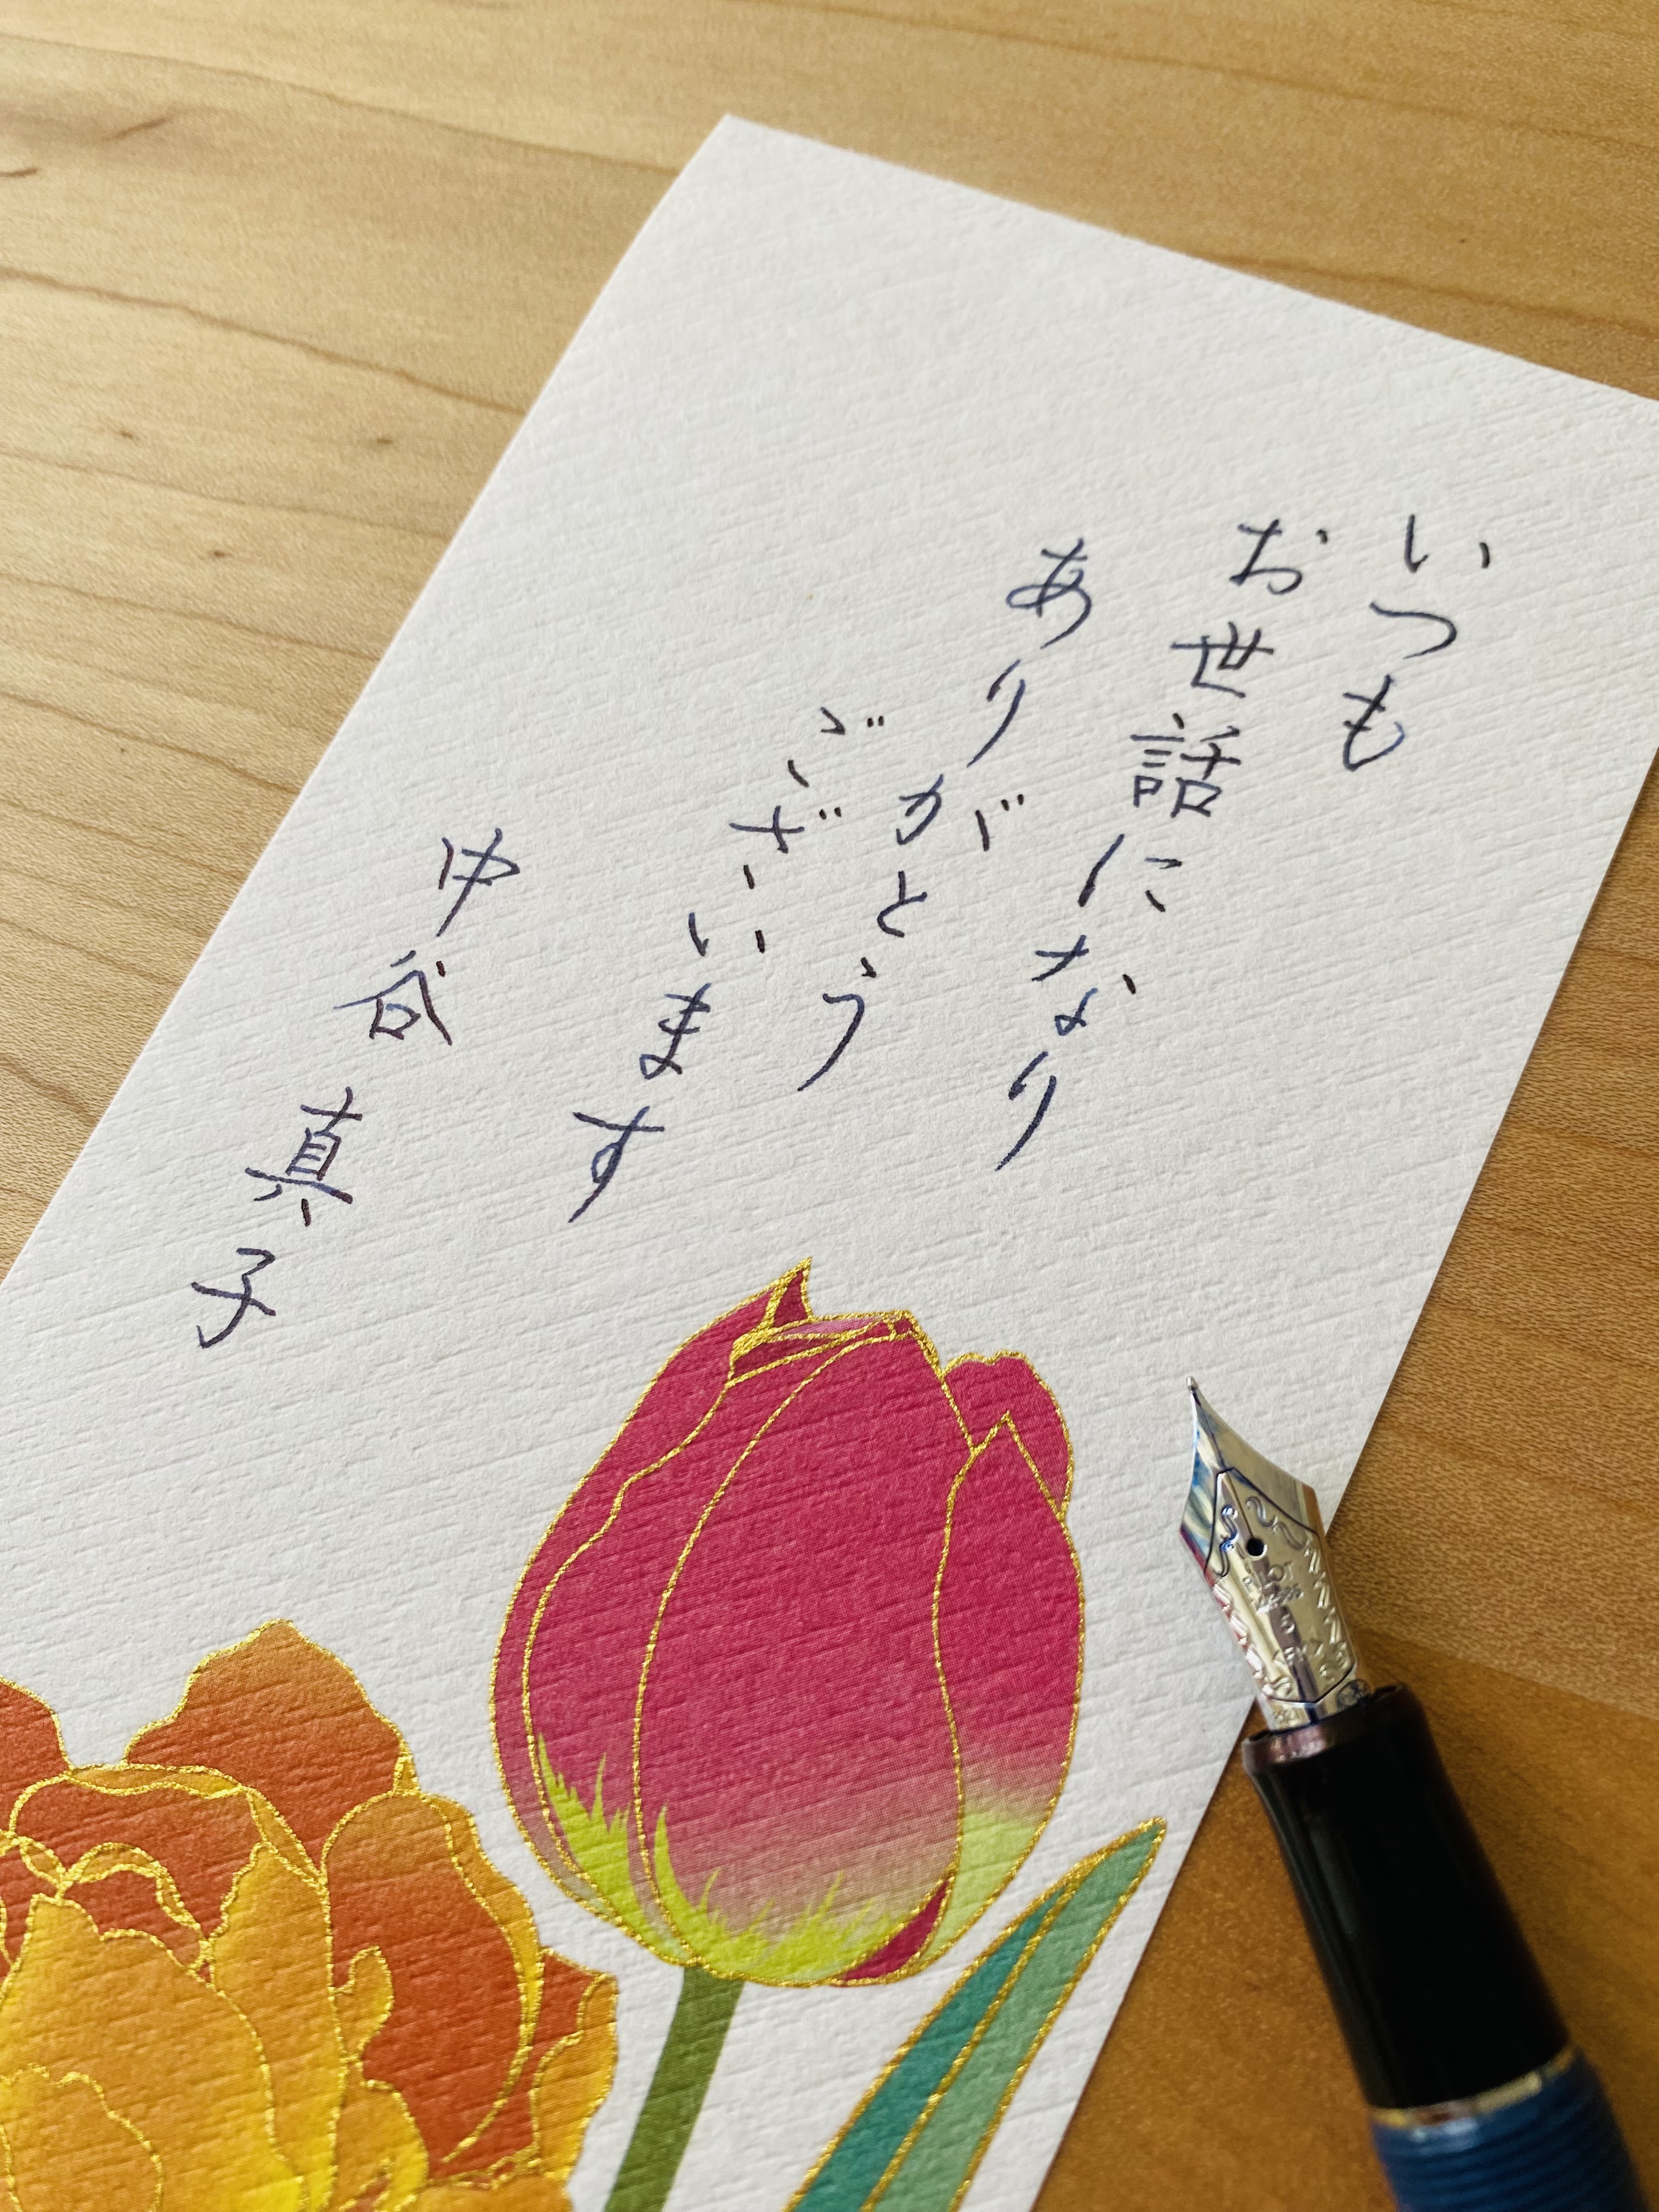 いつも
お世話になり
ありがとう
ございます
中谷 真子
PILOT